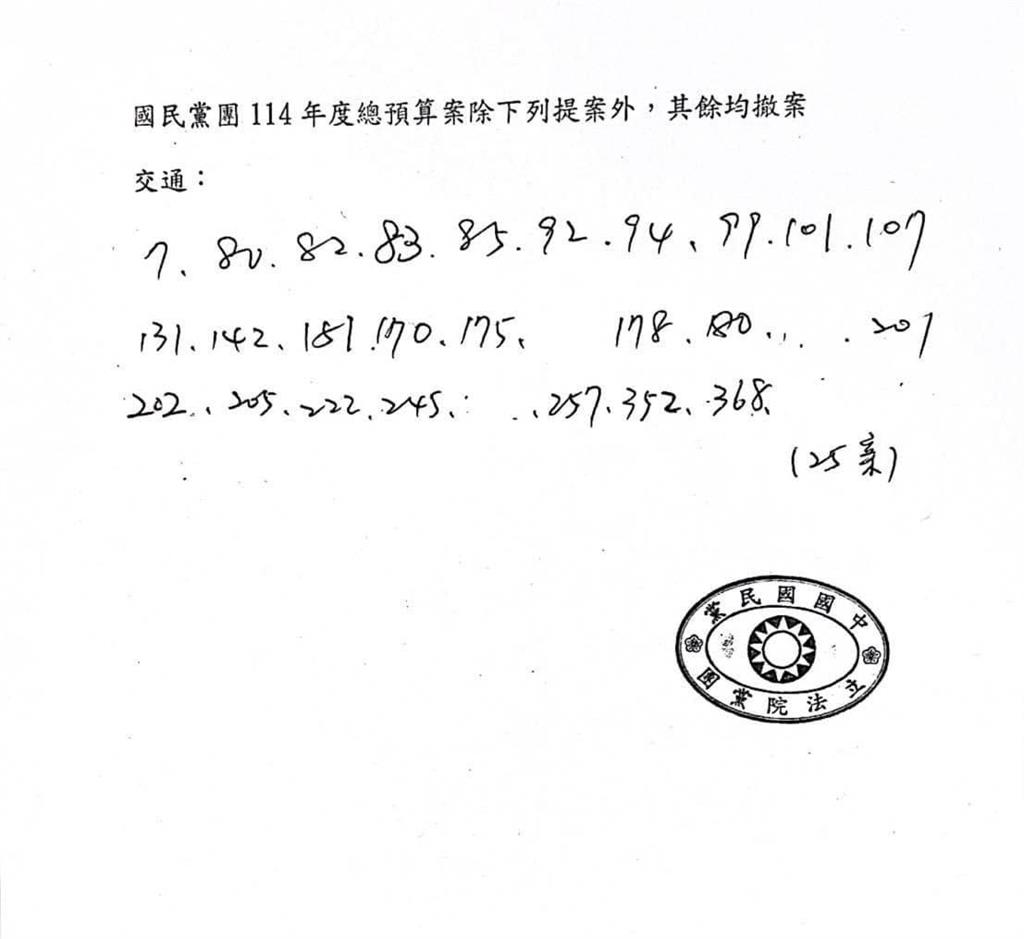 國民黨團 114 年度總預算案除下列提案外，其餘均撤案
交通：
7、80、82、83、85、92、94、99、101、107
131、142、151、170、175、178、180、、、201
202、、205、222、245、、257、352、368、
(25案)
中國國民黨
立法院黨團